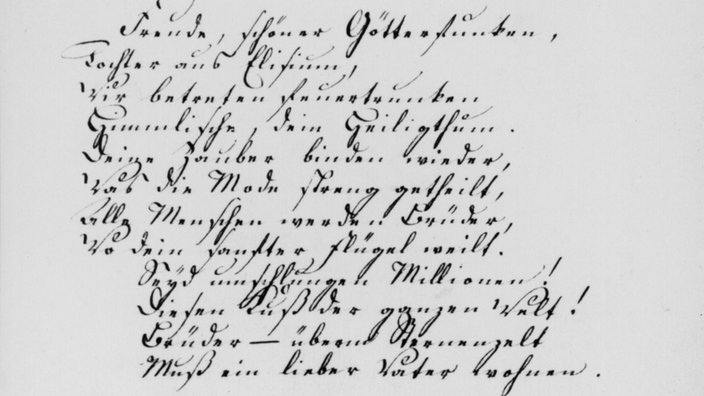 Freude, schöner Götterfunken,
Tochter aus Elisium,
Wir betreten feuertrunken
Himmlische, dein Heiligthum.
Deine Zauber binden wieder,
Was die Mode streng getheilt,
Alle Menschen werden Brüder,
Wo dein sanfter Flügel weilt.
Seyd umschlungen Millionen!
Diesen Kuß der ganzen Welt!
Brüder — überm Sternenzelt
Muß ein lieber Vater wohnen.